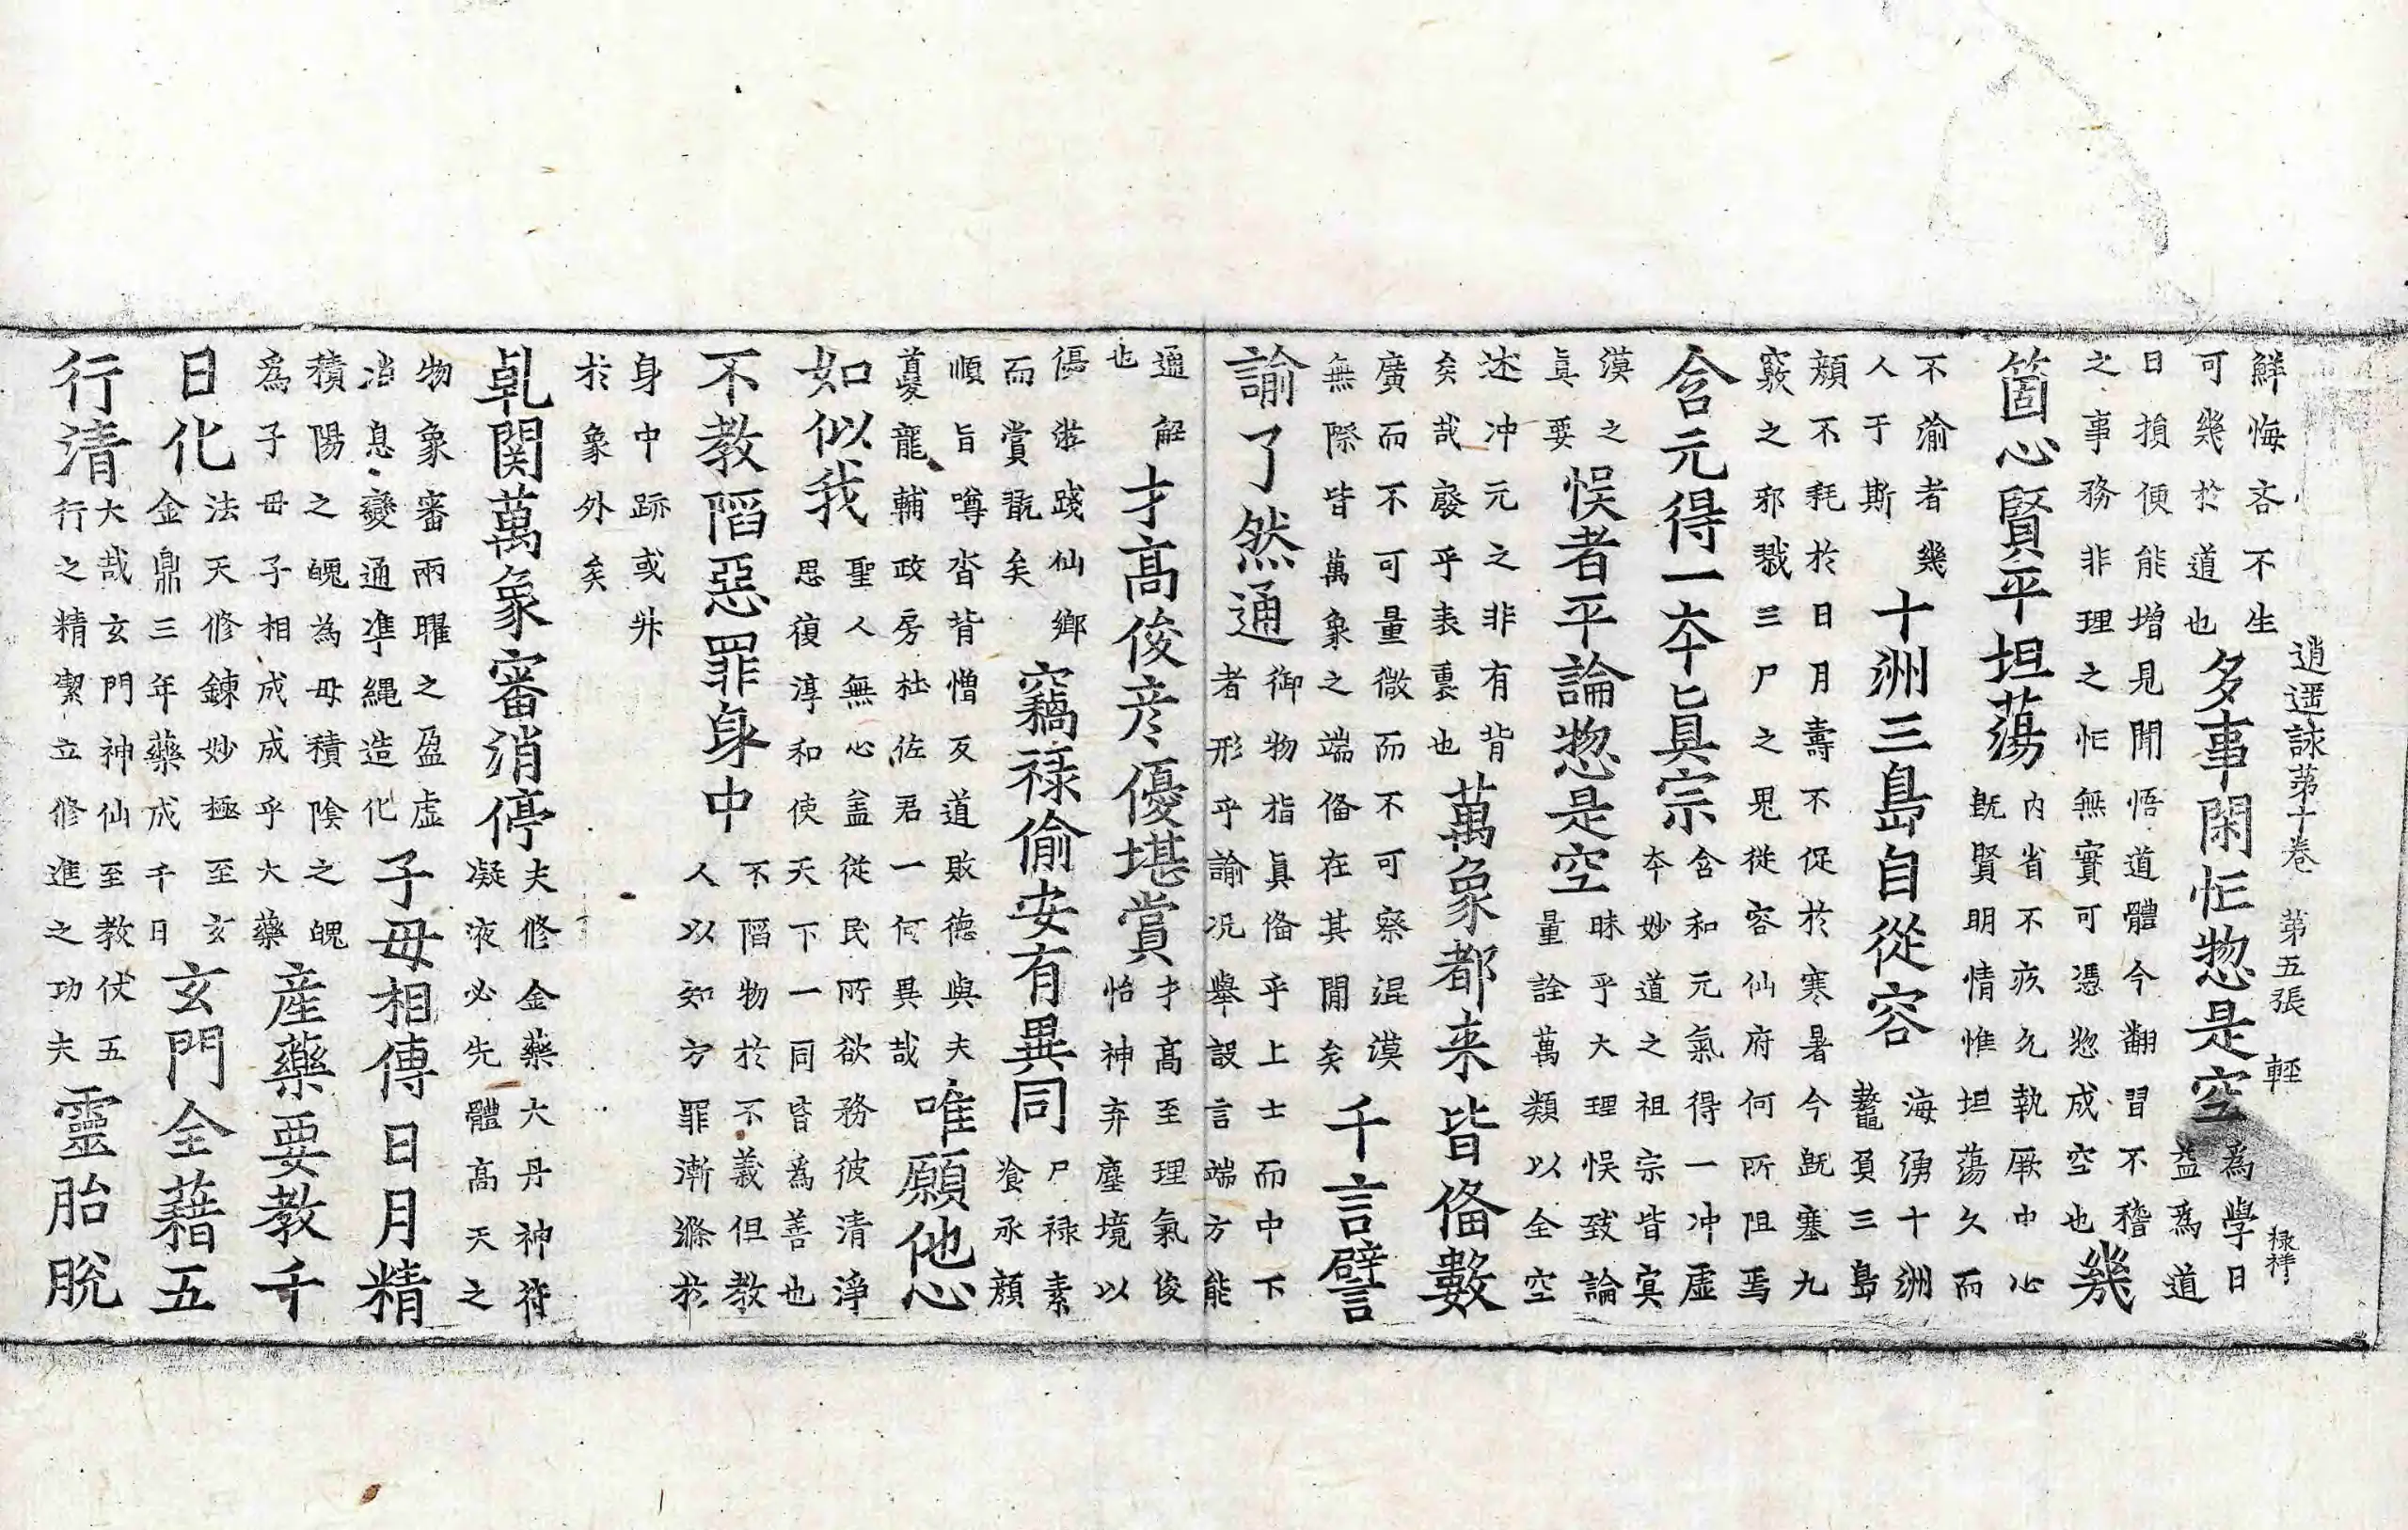 逍遥詠第十卷 第五張 輕 禄祥
鮮悔吝不生
可幾於道也
多事閑忙惣是空
為學日
益為道
日損便能增見聞悟道體今翻習不稽
之事務非理之忙無實可憑惣成空也
幾
箇心賢平坦蕩
内省不疚允執厥中心
既賢明情惟坦蕩久而
不渝者幾
人于斯
十洲三島自從容
海湧十洲
鼇負三島
顔不耗於日月壽不促於寒暑今既塞九
竅之邪戮三尸之鬼從容仙府何所阻焉
含元得一夲真宗
含和元氣得一冲虛
夲妙道之祖宗皆冥
漠之
真要
悮者平論惣是空
昧乎大理悮致論
量詮萬類以全空
述冲元之非有背
矣哉廢乎表裏也
萬象都来皆俻數
廣而不可量微而不可察混漠
無際皆萬象之端俻在其間矣
千言譬
諭了然通
御物指真俻乎上士而中下
者形乎諭况舉設言端方能
通解
也
才高俊彦優堪賞
才高至理氣俊
怡神弃塵境以
偃遊踐仙鄉
而賞翫矣
竊禄偷安有異同
尸禄素
飡承顔
順旨噂沓背憎反道敗德與夫
夔龍輔政房杜佐君一何異哉
唯願他心
如似我
聖人無心盖從民所欲務彼清淨
思復淳和使天下一同皆為善也
不教䧟惡罪身中
不䧟物於不義但教
人以知方罪漸滌於
身中跡或升
於象外矣
乹関萬象審消停
夫修金藥大丹神符
凝液必先體高天之
物象審兩曜之盈虛
消息變通準繩造化
子母相傳日月精
積陽之魄為母積陰之魄
為子母子相成成乎大藥
産藥要教千
日化
法天修鍊妙極至玄
金鼎三年藥成千日
玄門全藉五
行清
大哉玄門神仙至教伏五
行之精潔立修進之功夫
靈胎脫